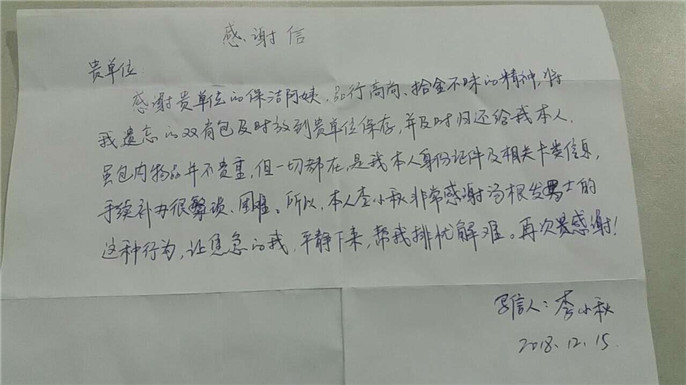 感谢信
贵单位
感谢贵单位的保洁阿姨,品行高尚、拾金不昧的精神,将
我遗忘的双肩包及时放到贵单位保存,并及时归还给我本人。
虽包内物品并不贵重,但一切都在,是我本人身份证件及相关卡类信息,
手续补办很繁琐、困难。所以,本人李小秋非常感谢冯根发男士的
这种行为,让焦急的我,平静下来,帮我排忧解难。再次感谢!
写信人:李小秋
2018.12.15